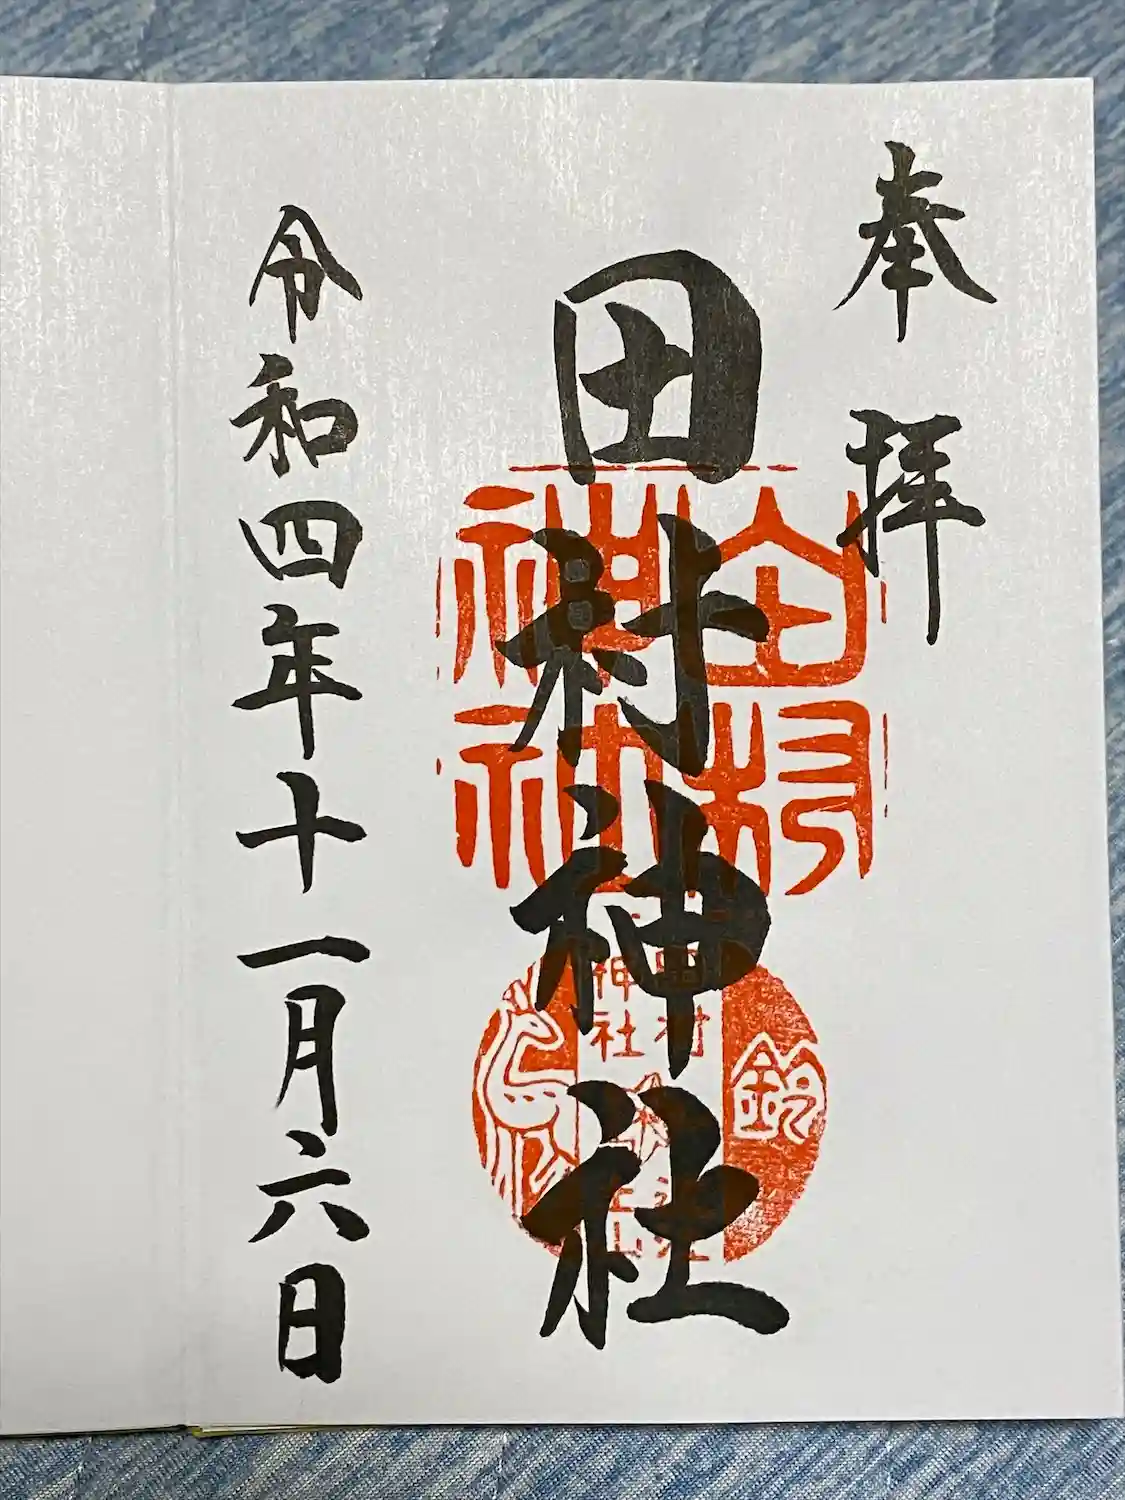 奉拝
田村神社
令和四年十一月六日
田村
神社
田村
神社
鈴